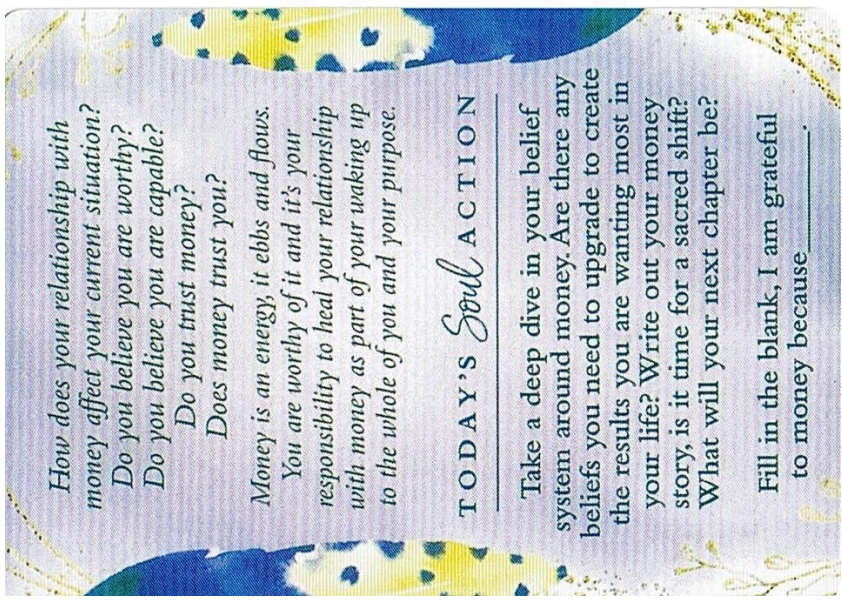 How does your relationship with
money affect your current situation?
Do you believe you are worthy?
Do you believe you are capable?
Do you trust money?
Does money trust you?
Money is an energy, it ebbs and flows.
You are worthy of it and it's your
responsibility to heal your relationship
with money as part of your waking up
to the whole of you and your purpose.
TODAY'S Soul ACTION
Take a deep dive in your belief
system around money. Are there any
beliefs you need to upgrade to create
the results you are wanting most in
your life? Write out your money
story, is it time for a sacred shift?
What will your next chapter be?
Fill in the blank, I am grateful
to money because_______.